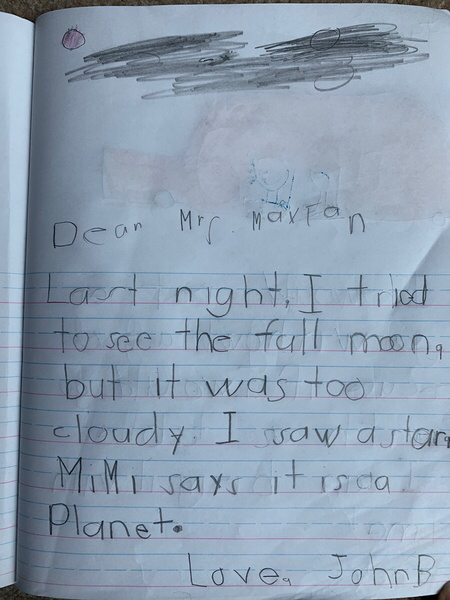 Dear Mrs. MaxFan
Last night, I tried
to see the full moon,
but it was too
cloudy. I saw a star,
MiMi says it is a
Planet.
Love, JohnB